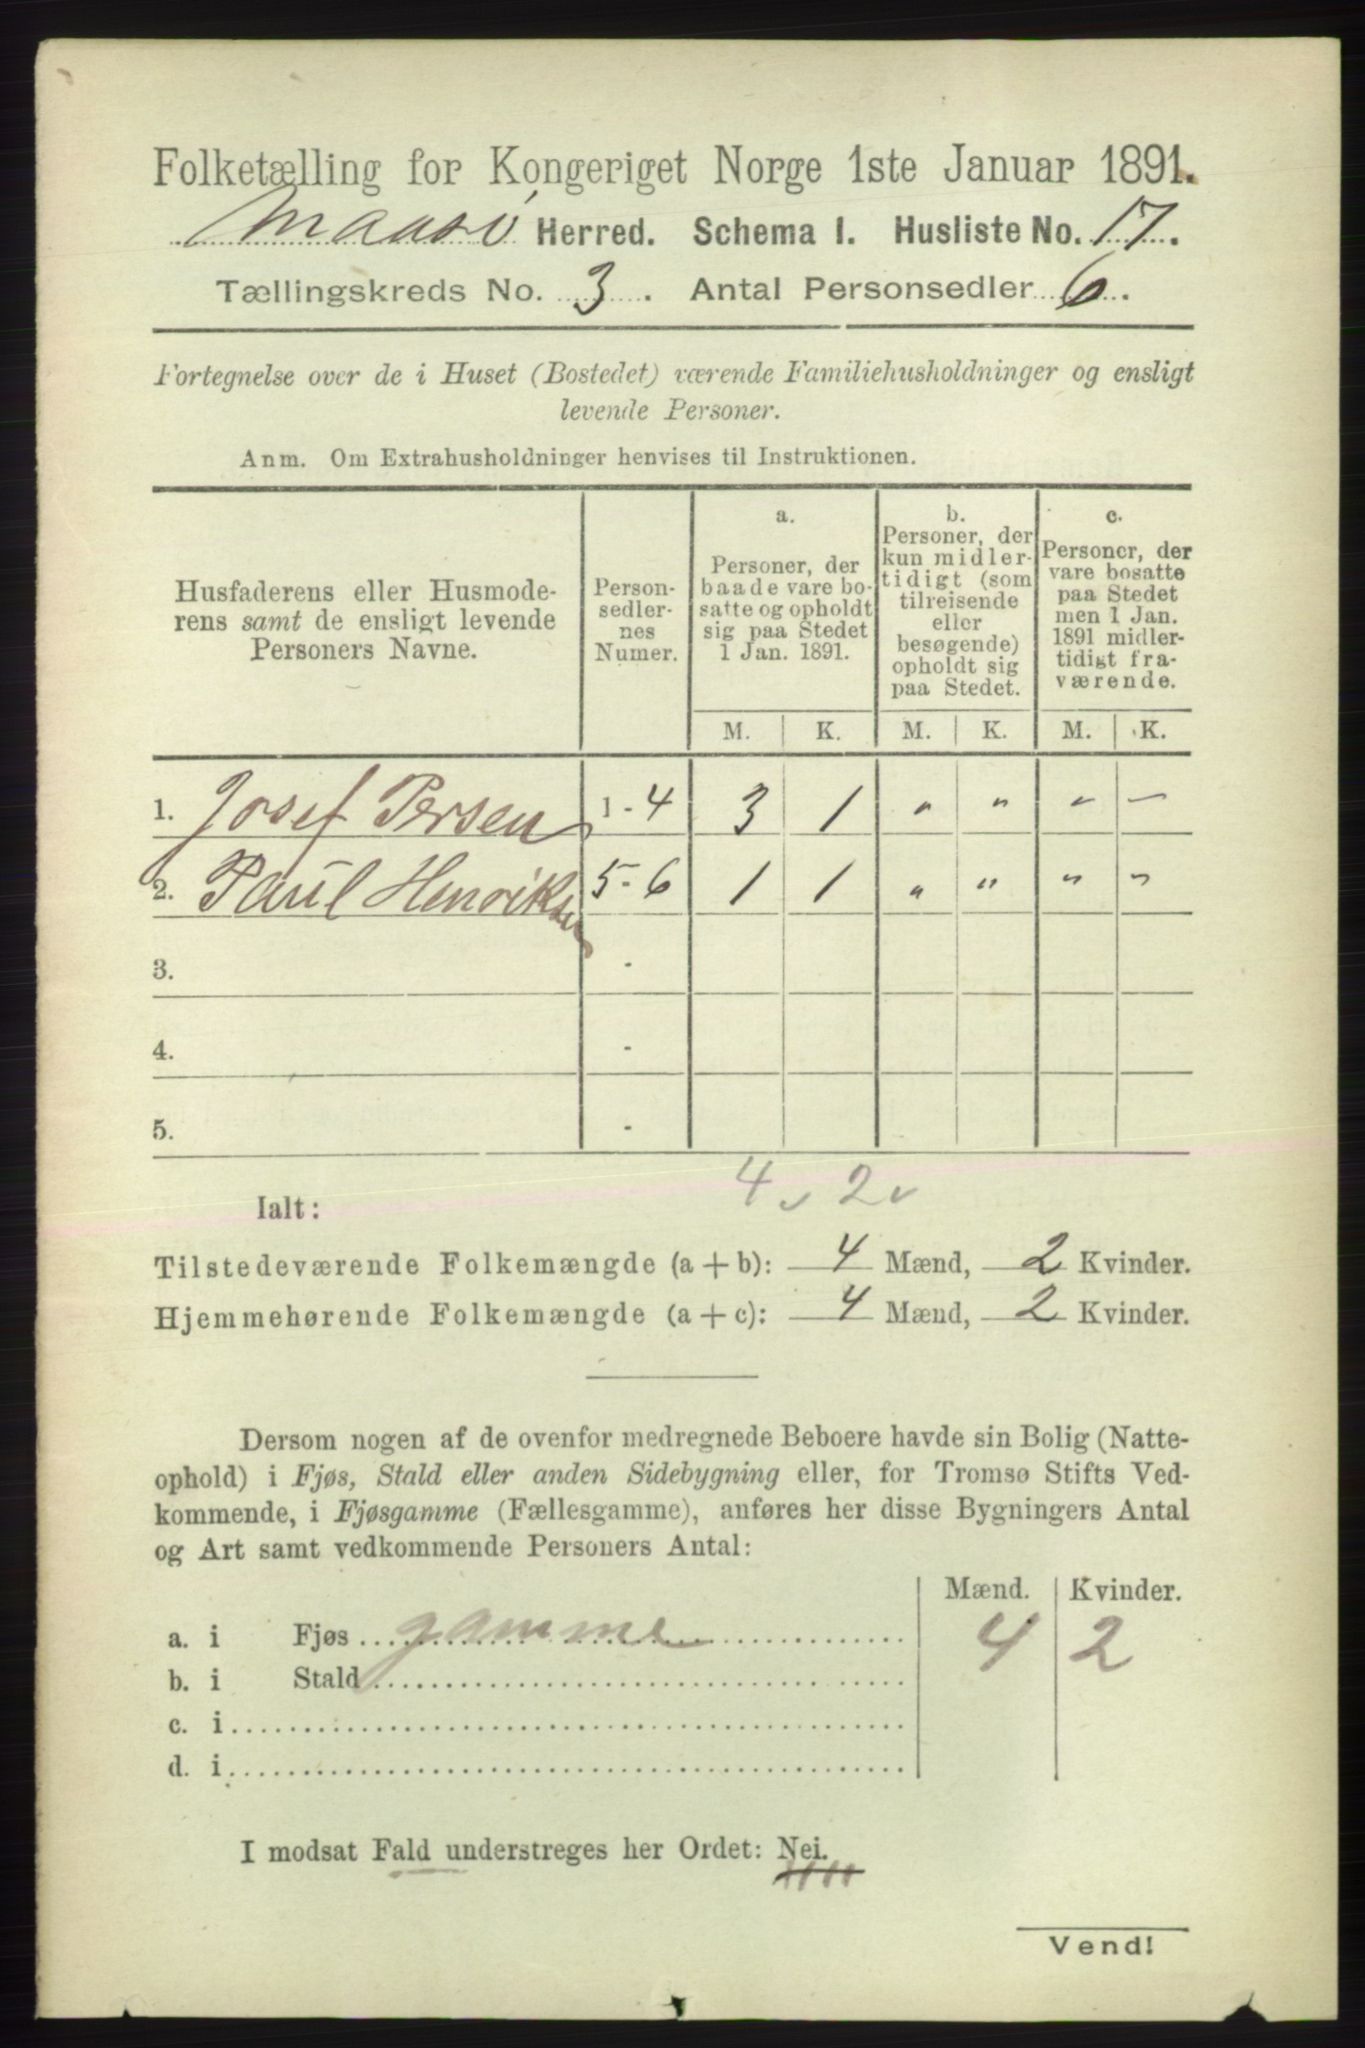 Folketælling for Kongeriget Norge 1ste Januar 1891.
Maasø Herred. Schema I. Husliste No. 17.
Tællingskreds No. 3. Antal Personsedler 6.
Fortegnelse over de i Huset (Bostedet) værende Familiehusholdninger og ensligt
levende Personer.
Anm. Om Extrahusholdninger henvises til Instruktionen.
Husfaderens eller Husmode-
rens samt de ensligt levende
Personers Navne.
Person-
sedler-
nes
Numer.
a.
Personer, der
baade vare bo-
satte og opholdt
sig paa Stedet
1 Jan. 1891.
b.
Personer, der
kun midler-
tidigt (som
tilreisende
eller
besøgende)
opholdt sig
paa Stedet.
c.
Personer, der
vare bosatte
paa Stedet
men 1 Jan.
1891 midler-
tidigt fra-
værende.
M. K. M. K. M. K.
1. Josef Persen 1-4 3 1 " " " —
2. Paul Henriksen 5-6 1 1 " " " "
3. -
4. -
5. -
4 2
Ialt:
Tilstedeværende Folkemængde (a + b): 4 Mænd, 2 Kvinder.
Hjemmehørende Folkemængde (a + c): 4 Mænd, 2 Kvinder.
Dersom nogen af de ovenfor medregnede Beboere havde sin Bolig (Natte-
ophold) i Fjøs, Stald eller anden Sidebygning eller, for Tromsø Stifts Ved-
kommende, i Fjøsgamme (Fællesgamme), anføres her disse Bygningers Antal
og Art samt vedkommende Personers Antal:
Mænd. Kvinder.
a. i Fjøs gamme 4 2
b. i Stald
c. i
d. i
I modsat Fald understreges her Ordet: Nei.
Vend!